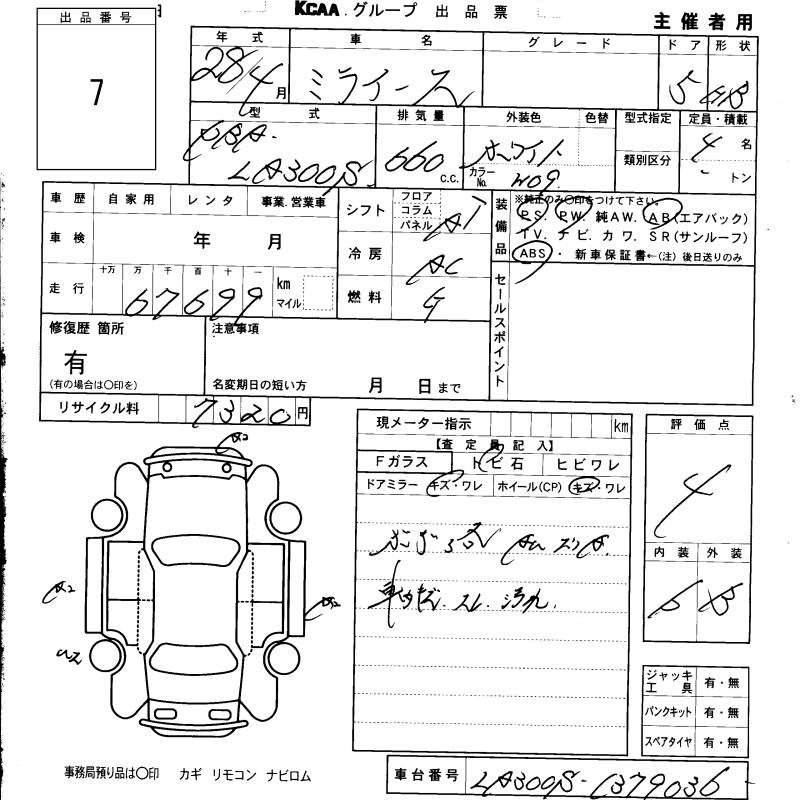 KCAA.グループ 出品票
主催者用
出品番号
7
年式 車名 グレード ドア 形状
28/4月 ミライース 5 HB
型式 排気量 外装色 色替 型式指定 定員・積載
DBA-
LA300S 660 c.c. ホワイト カラーNo. W09 類別区分 4名
トン
車歴 自家用 レンタ 事業.営業車
シフト フロア コラム パネル AT
装備品 ※純正のみ〇印をつけて下さい。
PS. PW. 純AW. AB(エアバック)
TV. ナビ. カワ. SR(サンルーフ)
ABS・ 新車保証書←(注)後日送りのみ
車検 年 月
冷房 AC
走行 十万 万 千 百 十 一
67699 km マイル
燃料 G
セールスポイント
修復歴 箇所
有
(有の場合は〇印を)
注意事項
名変期日の短い方 月 日まで
リサイクル料 7320円
現メーター指示 km
【査定員記入】
Fガラス トビ石 ヒビワレ
ドアミラー キズ・ワレ ホイール(CP) キズ・ワレ
車内 スレ 汚れ
評価点
4
内装 外装
B
A2
A2
A2
ジャッキ工具 有・無
パンクキット 有・無
スペアタイヤ 有・無
事務局預り品は〇印 カギ リモコン ナビロム
車台番号 LA300S-1379036